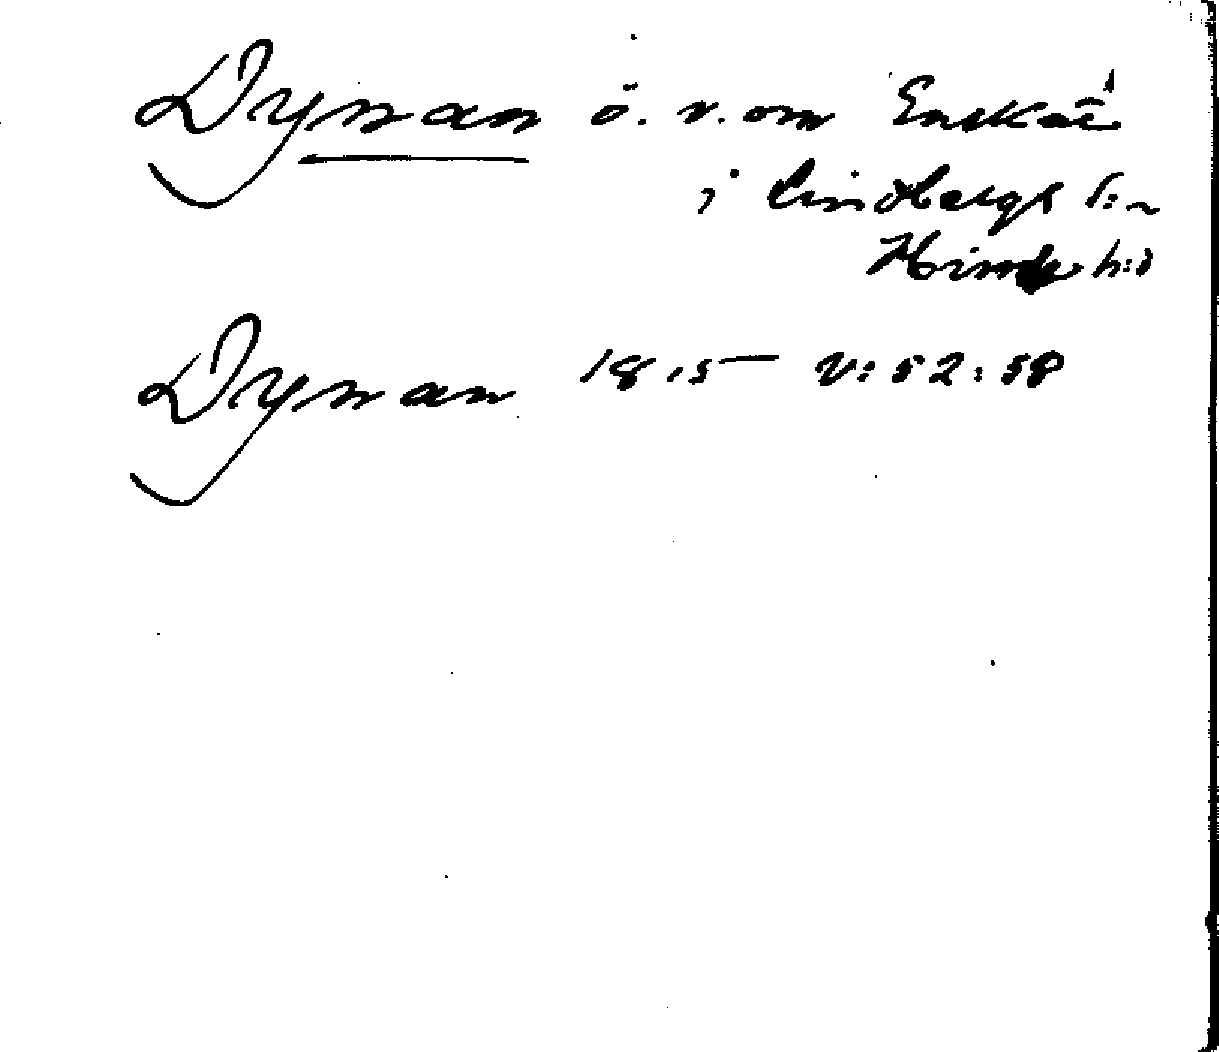 Dynan ö. v. om Enskär
i Lindbergs s:n
Himle h:d
Dynan 1815 — V: 52: 58